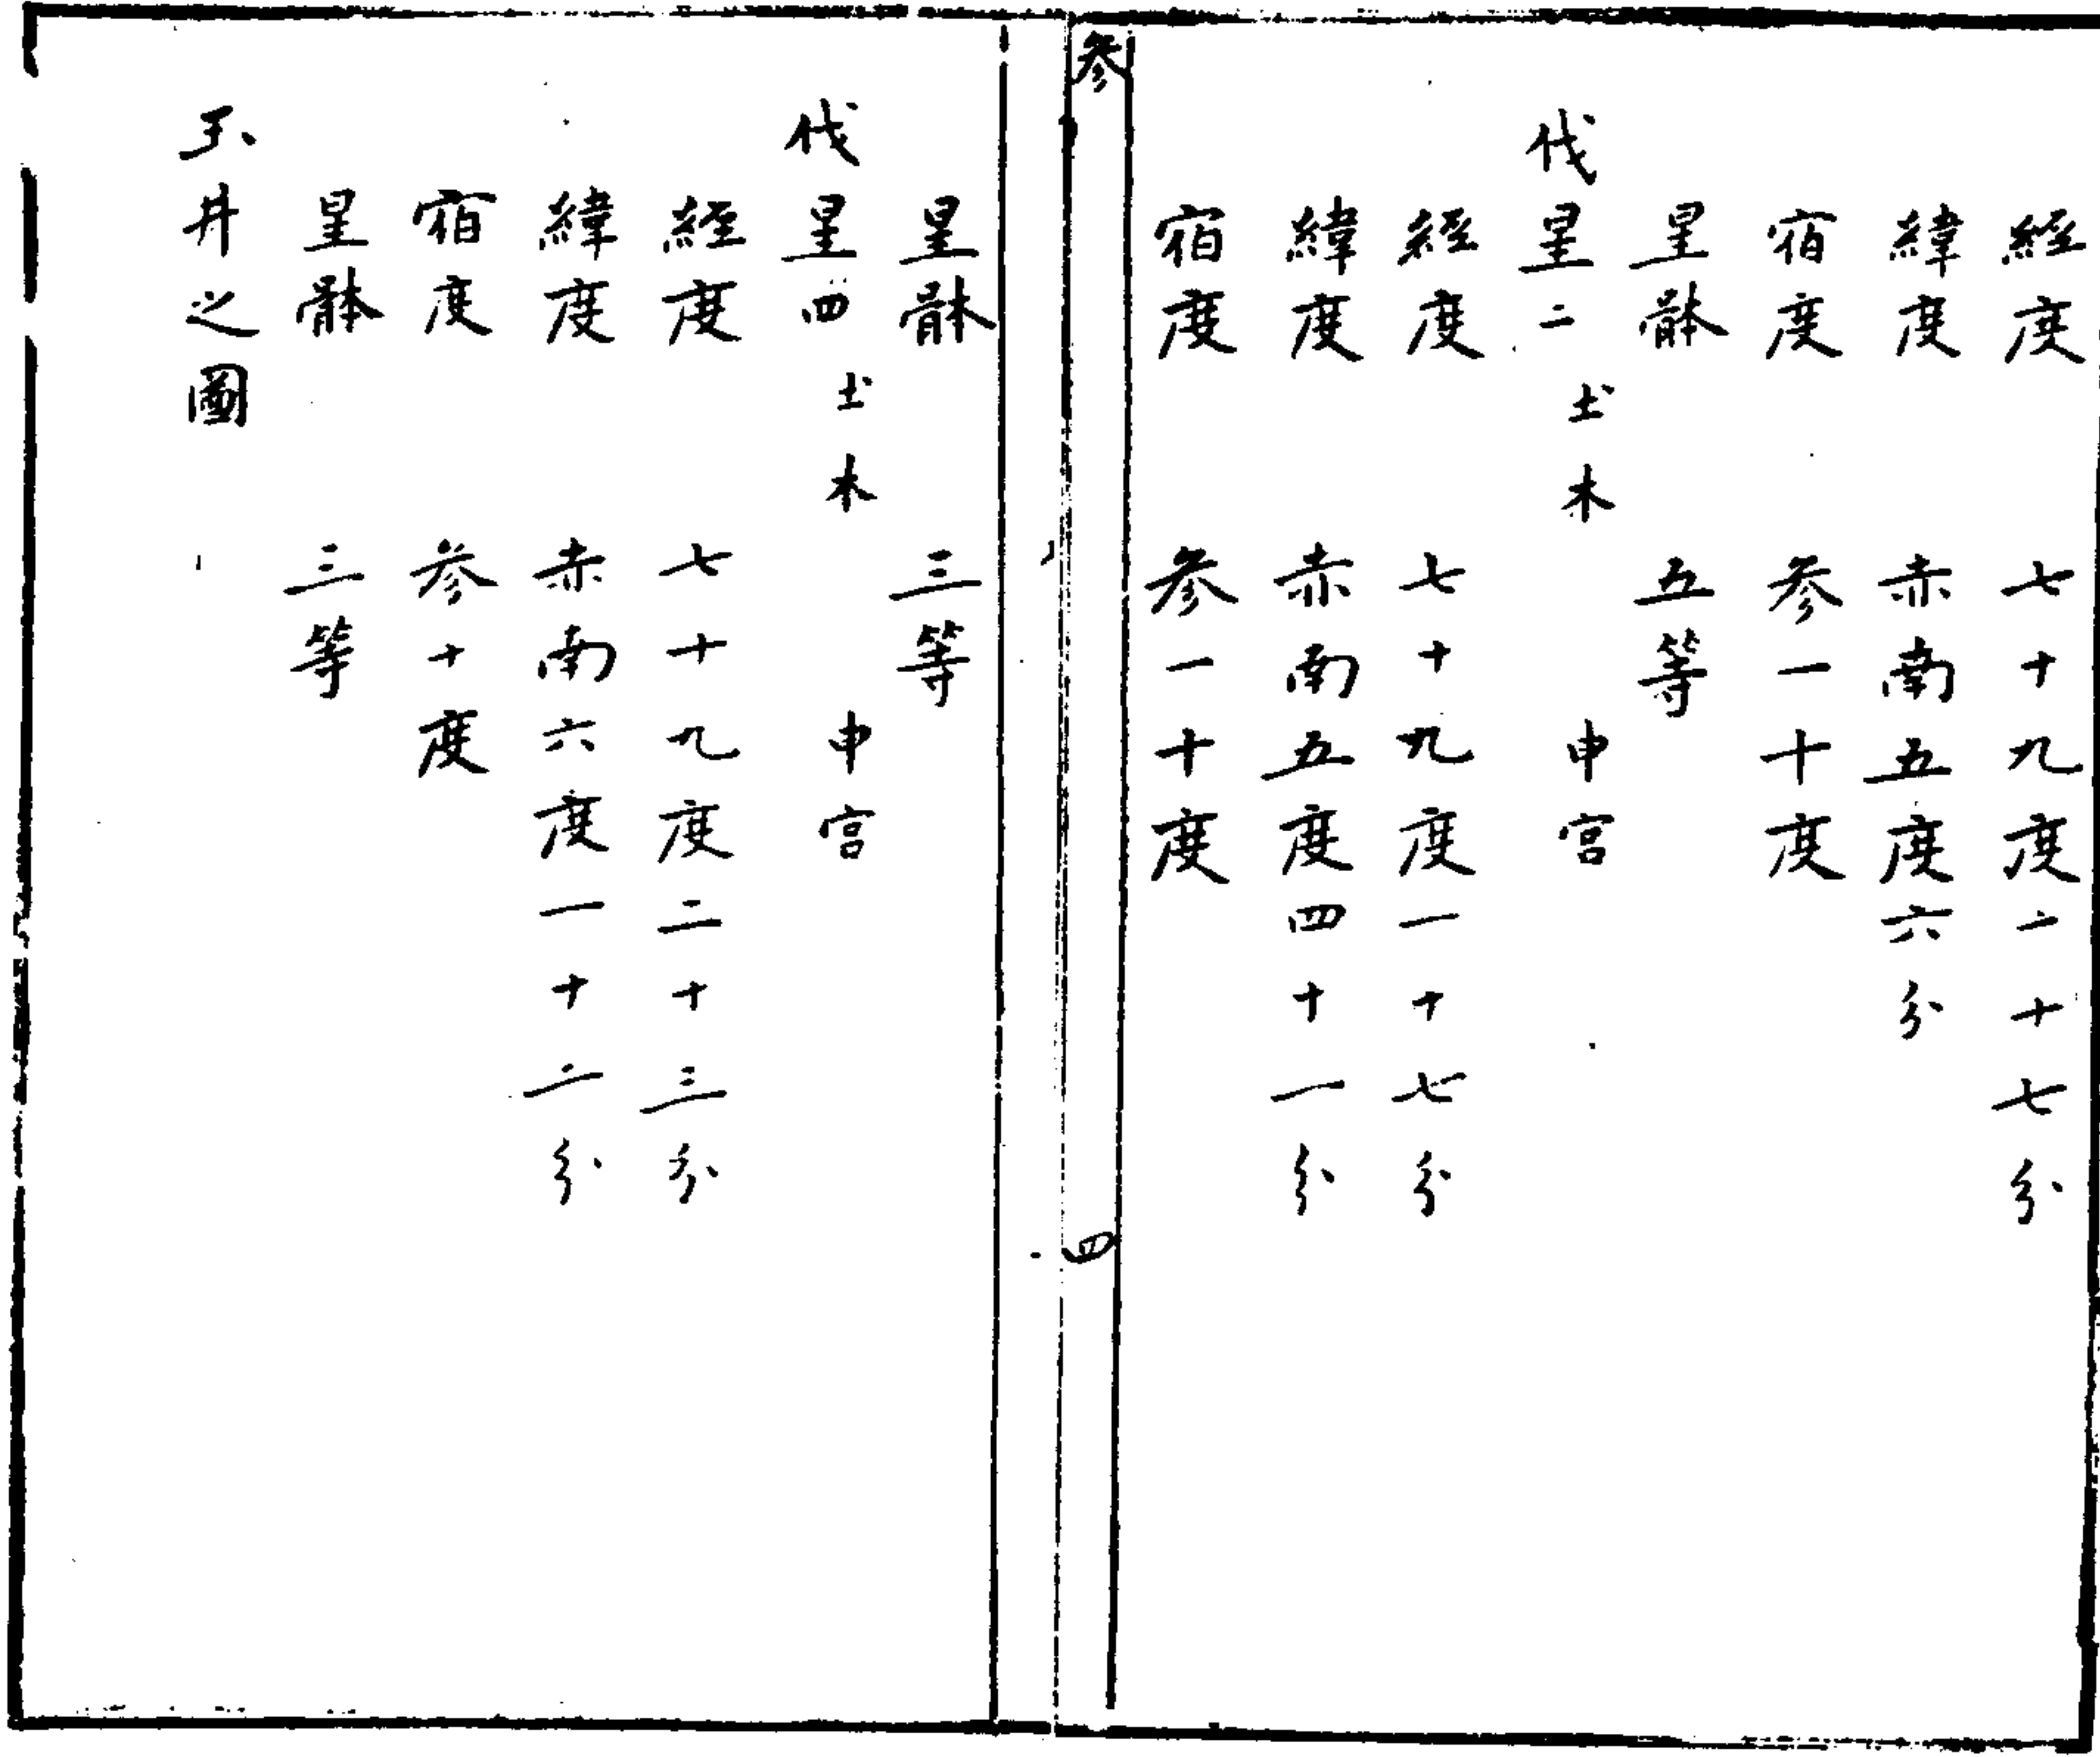 經度 七十九度二十七分
緯度 赤南五度六分
宿度 参一十度
星體 五等
伐星二 土木 申宮
經度 七十九度一十七分
緯度 赤南五度四十一分
宿度 参一十度
参 四
星體 三等
伐星四 土木 申宮
經度 七十九度二十三分
緯度 赤南六度一十二分
宿度 参十度
星體 三等
玉井之圖